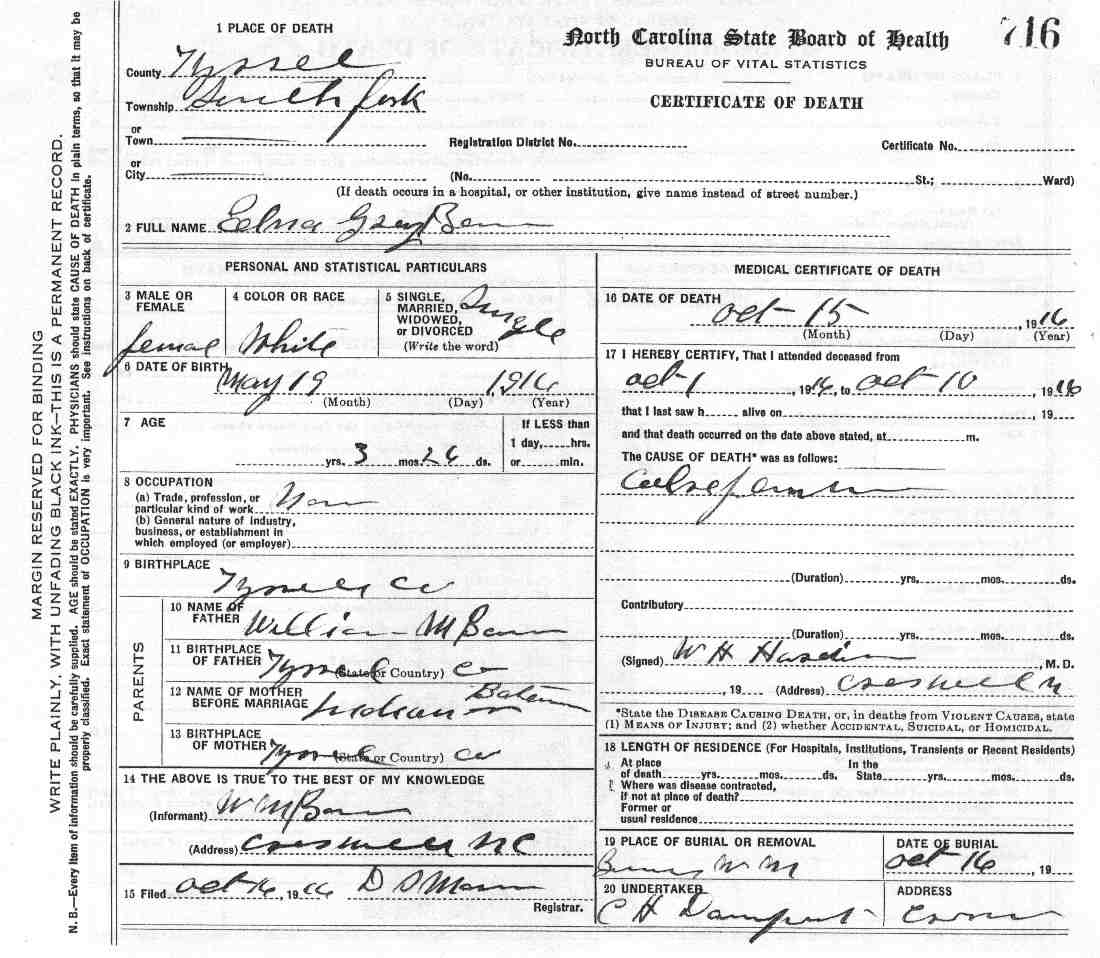 MARGIN RESERVED FOR BINDING
WRITE PLAINLY, WITH UNFADING BLACK INK—THIS IS A PERMANENT RECORD.
N. B.—Every item of information should be carefully supplied. AGE should be stated EXACTLY. PHYSICIANS should state CAUSE OF DEATH in plain terms, so that it may be
properly classified. Exact statement of OCCUPATION is very important. See instructions on back of certificate.
North Carolina State Board of Health
716
BUREAU OF VITAL STATISTICS
CERTIFICATE OF DEATH
1 PLACE OF DEATH
County
Township South fork
or
Town
Registration District No.
Certificate No.
or
City
(No. St.; Ward)
(If death occurs in a hospital, or other institution, give name instead of street number.)
2 FULL NAME Edna Gray
PERSONAL AND STATISTICAL PARTICULARS
3 MALE OR
FEMALE
female
4 COLOR OR RACE
White
5 SINGLE,
MARRIED,
WIDOWED,
or DIVORCED
(Write the word)
Single
6 DATE OF BIRTH
May 19 1916
(Month) (Day) (Year)
7 AGE
If LESS than
1 day, hrs.
or min.
yrs. 3 mos. 26 ds.
8 OCCUPATION
(a) Trade, profession, or
particular kind of work
(b) General nature of industry,
business, or establishment in
which employed (or employer)
9 BIRTHPLACE
Co
PARENTS
10 NAME OF
FATHER
William M
11 BIRTHPLACE
OF FATHER
(State or Country) Co
12 NAME OF MOTHER
BEFORE MARRIAGE
13 BIRTHPLACE
OF MOTHER
(State or Country) Co
14 THE ABOVE IS TRUE TO THE BEST OF MY KNOWLEDGE
(Informant) W M
(Address) Creswell NC
15 Filed Oct 16, 1916 D S
Registrar.
MEDICAL CERTIFICATE OF DEATH
16 DATE OF DEATH
Oct 15, 1916
(Month) (Day) (Year)
17 I HEREBY CERTIFY, That I attended deceased from
Oct 1, 1916, to Oct 10, 1916
that I last saw h alive on 19
and that death occurred on the date above stated, at m.
The CAUSE OF DEATH* was as follows:
(Duration) yrs. mos. ds.
Contributory
(Duration) yrs. mos. ds.
(Signed) W H , M. D.
, 19 (Address) Creswell
*State the DISEASE CAUSING DEATH, or, in deaths from VIOLENT CAUSES, state
(1) MEANS OF INJURY; and (2) whether ACCIDENTAL, SUICIDAL, or HOMICIDAL.
18 LENGTH OF RESIDENCE (For Hospitals, Institutions, Transients or Recent Residents)
At place
of death yrs. mos. ds.
In the
State yrs. mos. ds.
Where was disease contracted,
if not at place of death?
Former or
usual residence
19 PLACE OF BURIAL OR REMOVAL
DATE OF BURIAL
Oct 16, 19
20 UNDERTAKER
C H
ADDRESS